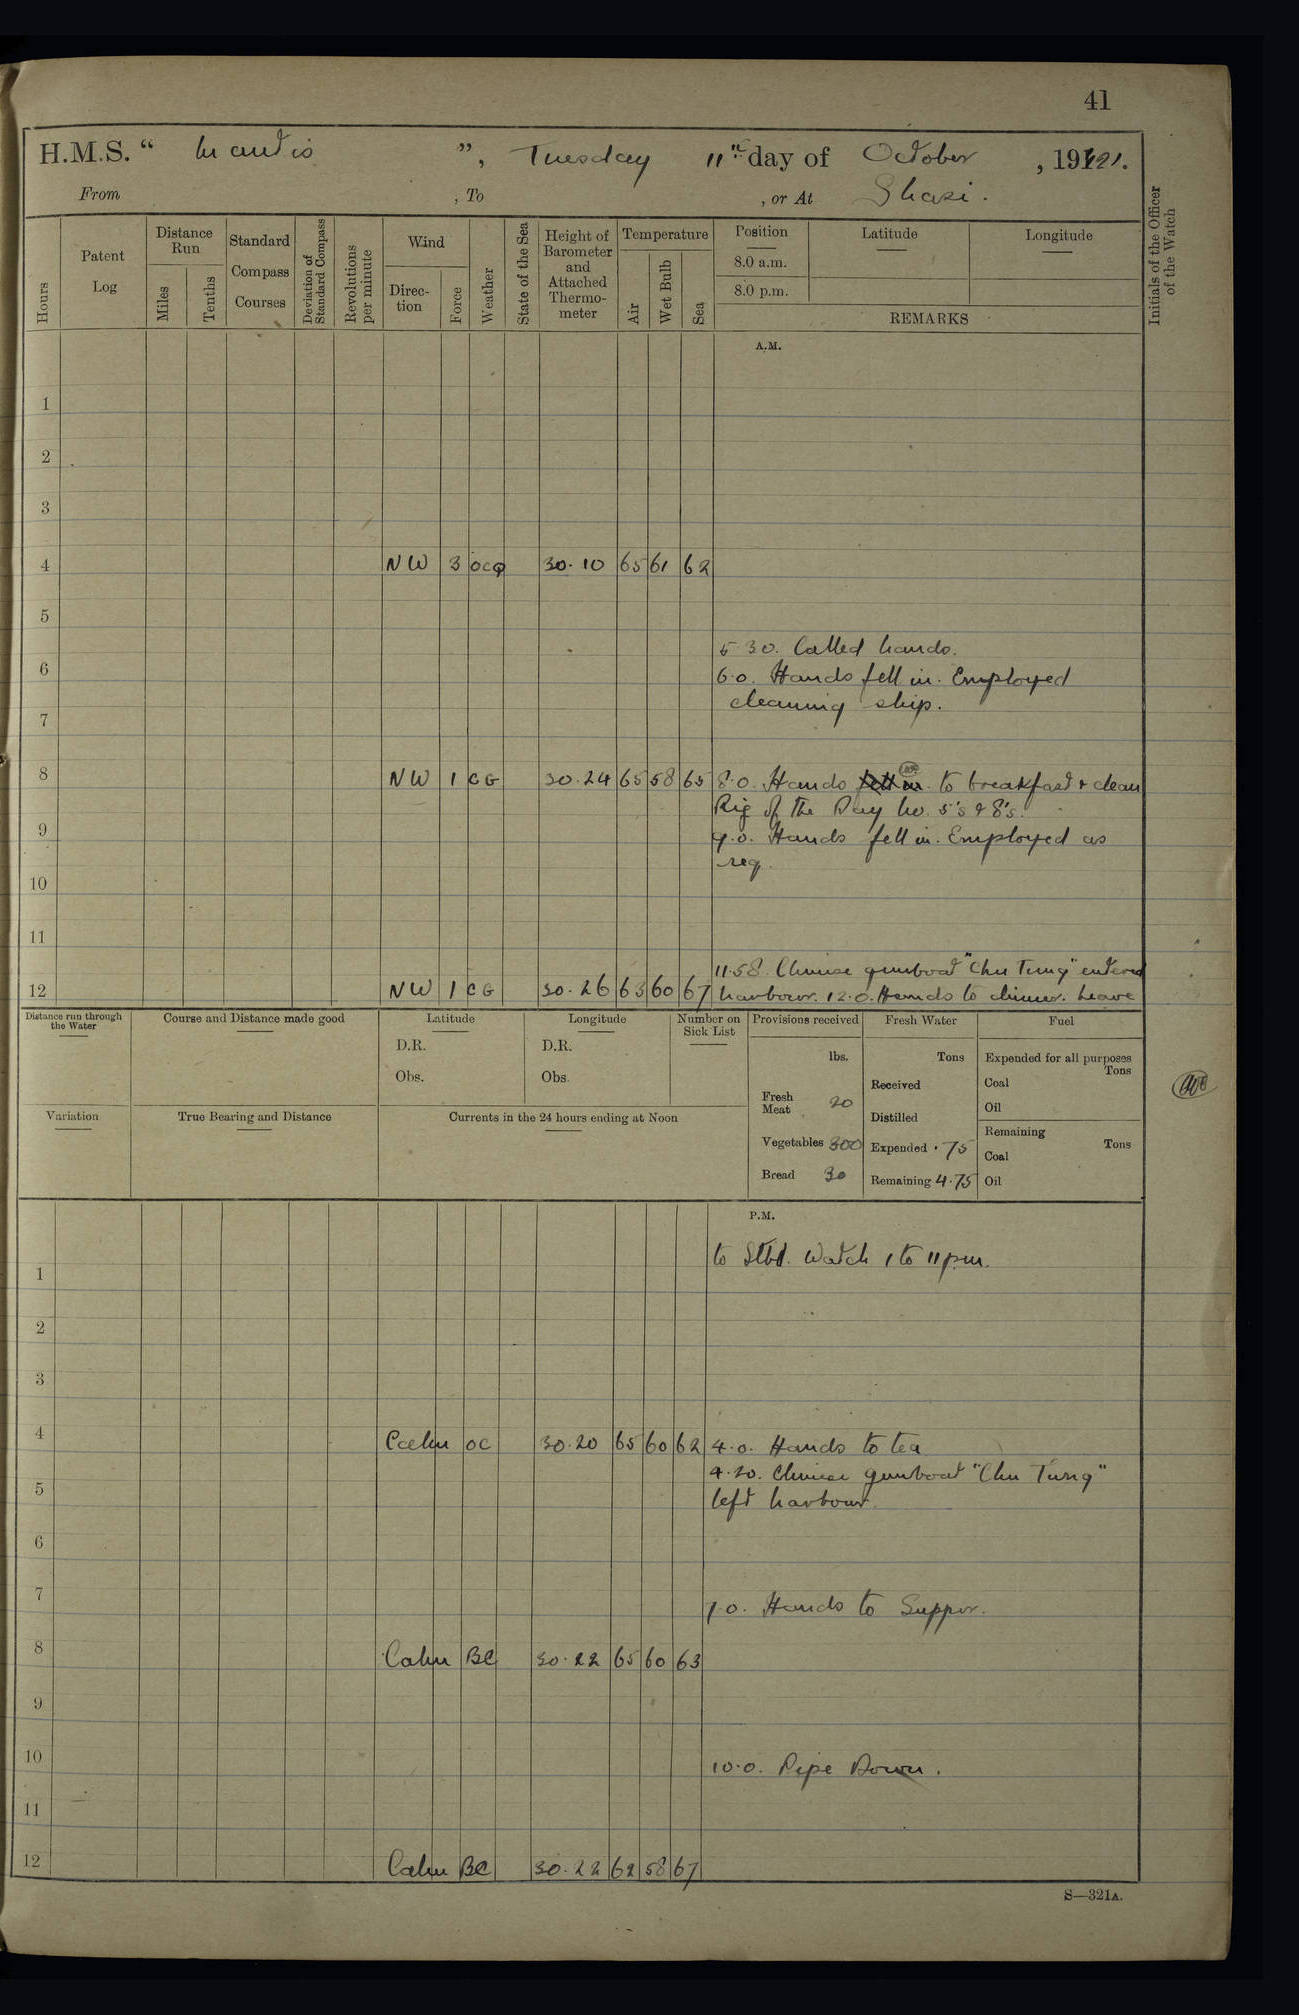 41
H.M.S. “ Mantis ”, Tuesday 11th day of October, 1921.
From , To , or At Shasi.
Hours
Patent Log
Distance Run
Miles
Tenths
Standard Compass Courses
Deviation of Standard Compass
Revolutions per minute
Wind
Direction
Force
Weather
State of the Sea
Height of Barometer and Attached Thermometer
Temperature
Air
Wet Bulb
Sea
Position
8.0 a.m.
8.0 p.m.
Latitude
Longitude
REMARKS
Initials of the Officer of the Watch
A.M.
1
2
3
4 NW 3 ocq 30.10 65 61 62
5
5 30. Called hands.
6 6.0. Hands fell in. Employed
cleaning ship.
7
8 NW 1 CG 30.24 65 58 65 8.0. Hands fell in to breakfast & clean
Rig of the Day No. 5's & 8's.
9 9.0. Hands fell in. Employed as
req.
10
11
11.58. Chinese gunboat "Chu Tung" entered
12 NW 1 CG 30.26 63 60 67 harbour. 12.0. Hands to dinner. Leave
Distance run through the Water
Course and Distance made good
Latitude
D.R.
Obs.
Longitude
D.R.
Obs.
Number on Sick List
Provisions received
lbs.
Fresh Meat 20
Vegetables 300
Bread 30
Fresh Water
Tons
Received
Distilled
Expended .75
Remaining 4.75
Fuel
Expended for all purposes
Tons
Coal
Oil
Remaining
Tons
Coal
Oil
Variation
True Bearing and Distance
Currents in the 24 hours ending at Noon
P.M.
to Stbd. Watch 1 to 11 pm.
1
2
3
4 Calm oc 30.20 65 60 62 4.0. Hands to tea
4.20. Chinese gunboat "Chu Tung"
5 left harbour.
6
7 7.0. Hands to Supper.
8 Calm BC 30.22 65 60 63
9
10 10.0. Pipe Down.
11
12 Calm BC 30.22 62 58 67
S—321A.